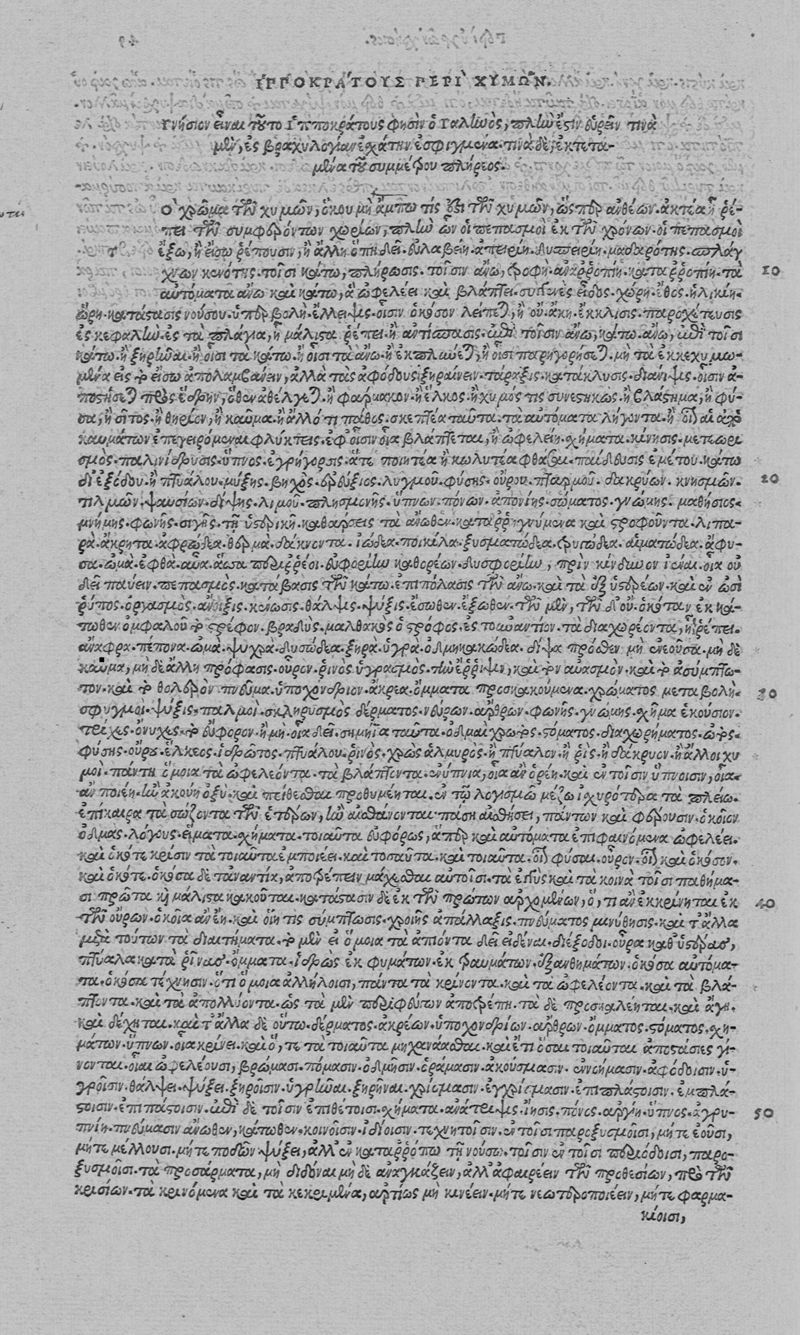 ΙΠΠΟΚΡΑ´ΤΟΥΣ ΠΕΡΙ` ΧΥΜΩ῀Ν.
Γνήσιον εἶναι τοῦτο Ἱπποκράτους φησὶν ὁ Γαληνὸς, πλὴν ἔστιν εὑρεῖν τινὰ
μὲν, ἐς βραχυλογίαν ἐχάτην ἐσφιγμένα. τινὰ δὲ, ἐκτετα-
μένα τοῦ συμμέτρου πλήρεος.
Ο῾ χρῶμα τῶν χυμῶν, ὅκου μὴ ἄμπωτίς ἐστι τῶν χυμῶν, ὥσπερ ἀνθέων. ἀκτέα ἢ ῥέ-
πει τῶν συμφερόντων χωρίων, πλὴν ὧν οἱ πεπασμοὶ ἐκ τῶν χρόνων. οἱ πεπασμοὶ
ἔξω, ἢ εἴσω ῥέπουσιν, ἢ ἄλλη ὅπη δεῖ. εὐλαβείη. ἀπειρίη. δυσπειρίη. μαδαρότης. σπλάγ
χνων κενότης. τοῖσι κάτω, πλήρωσις. τοῖσιν ἄνω, τροφή. ἀναρροπίη. καταρροπίη. τὰ 10
αὐτόματα ἄνω καὶ κάτω, ἃ ὠφελέει καὶ βλάπτει. συγγενὲς εἶδος. χώρη. ἔθος. ἡλικίη.
ὥρη. κατάστασις νούσου. ὑπερβολή. ἔλλειψις. οἷσιν ὁκόσον λείπεται, ἢ οὔ. ἄκη. ἔκκλισις. παροχέτευσις
ἐς κεφαλὴν. ἐς τὰ πλάγια, ᾗ μάλιστα ῥέπει. ἢ ἀντίσπασις. ἐπὶ τοῖσιν ἄνω, κάτω. ἄνω, ἐπὶ τοῖσι
κάτω. ἢ ξηρῆναι. ἢ οἷσι τὰ κάτω. ἢ οἷσι τὰ ἄνω. ἢ ἐκπλύνεται, ἢ οἷσι παρηγορῆσαι. μὴ τὰ ἐκκεχυμω-
μένα εἰς τὸ εἴσω ἀπολαμβάνειν, ἀλλὰ τὰς ἀφόδους ξηραίνειν. τάραξις. κατάκλυσις. διάνιψις. οἷσιν ἀ-
ποστήσεται πρὸς ἕδρην, ὅθεν ἀθέλγεται. ἢ φάρμακον. ἢ ἕλκος. ἢ χυμός τις συνεστηκώς. ἢ βλάστημα, ἢ φῦ-
σα, ἢ σῖτος. ἢ θηρίον, ἢ καῦμα. ἢ ἄλλό τι πάθος. σκεπτέα ταῦτα. τὰ αὐτόματα λήγοντα. ἢ
καυμάτων ἐπεγειρόμεναι φλύκτεις. ἐφ᾽ οἷσιν οἷα βλάπτεται, ἢ ὠφελέει. σχήματα. κίνησις. μετεωρι
σμός. παλινίδρυσις. ὕπνος. ἐγρήγορσις. ἅτε ποιητέα ἢ κωλυτέα φθάσαι. παίδευσις ἐμέτου. κάτω
διεξόδου. ἢ πτυάλου. μύξης. βηχός. ἐρεύξιος. λυγμοῦ. φύσης. οὔρου. πταρμοῦ. δακρύων. κνησμῶν. 20
τιλμῶν. ψαυσίων. δίψης. λιμοῦ. πλησμονῆς. ὕπνων. πόνων. ἀπονίης. σώματος. γνώμης. μαθήσιος.
μνήμης. φωνῆς. σιγῆς. τῇ ὑστερικῇ. καθάρσεις τὰ ἄνωθεν. καταρρηγνύμενα καὶ στροφοῦντα. λιπα-
ρά. ἄκρητα. ἀφρώδεα. θερμά. δάκνοντα. ἰώδεα. ποικίλα. ξυσματώδεα. τρυγώδεα. αἱματώδεα. ἄφυ-
σα. ὠμά. ἑφθά. αὖα. ἅσσα περιρρέοι. εὐφορίην καθορέων. δυσφορίην, πρὶν κίνδυνον ἰέναι. οἷα οὐ
δεῖ παύειν. πεπασμός. κατάβασις τῶν κάτω. ἐπιπόλασις τῶν ἄνω. καὶ τὰ ἐξ ὑστερέων. καὶ ἐν ὠσὶ
ῥύπος. ὀργασμός. ἄνοιξις. κένωσις. θάλψις. ψύξις. ἔσωθεν. ἔξωθεν. τῶν μὲν, τῶν δ᾽ οὔ. ὁκόταν ἐκ κά-
τωθεν ὀμφαλοῦ τὸ στρέφον. βραδὺς. μαλθακὸς ὁ στρόφος. ἐς τοὐναντίον. τὰ διαχωρέοντα, ᾗ ῥέπει.
ἄναφρα. πέπονα. ὠμά. ψυχρά. δυσώδεα. ξηρά. ὑγρά. ὁ μὴ κακώδεα. δίψα πρόσθεν μὴ ἐνεοῦσα. μὴ δὲ
καῦμα, μὴ δὲ ἄλλη πρόφασις. οὖρον. ῥινὸς ὑγρασμός. τὴν ἔρριψιν, καὶ τὸν αὐασμόν. καὶ τὸ ἀσύμπτω-
τον. καὶ τὸ θολερὸν πνεῦμα. ὑποχόνδριον. ἄκρεα. ὄμματα προσκακούμενα. χρώματος μεταβολή. 30
σφυγμοί. ψύξις. παλμοί. σκληρυσμὸς δέρματος. νεύρων. ἄρθρων. φωνῆς. γνώμης. σχῆμα ἑκούσιον.
τρίχες. ὄνυχες. τὸ εὔφορον. ἢ μή. οἷα δεῖ. σημεῖα ταῦτα. ὀδμαὶ χρωτός. στόματος. διαχωρήματος. ὠτός.
φύσης. οὔρου. ἕλκεος. ἱδρῶτος. πτυάλου. ῥινός. χρὼς ἁλμυρός. ἢ πτύαλον. ἢ ῥίς. ἢ δάκρυον. ἢ ἄλλοι χυ
μοί. πάντη ὅμοια τὰ ὠφελέοντα. τὰ βλάπτοντα. ἐνύπνια, οἷα ἂν ὁρέη. καὶ ἐν τοῖσιν ὕπνοισιν, οἷα
ἂν ποιέη. ἢν ἀκούη ὀξύ. καὶ πείθεσθαι προθυμέηται. ἐν τῷ λογισμῷ μέζω ἰσχυρότερα τὰ πλείω.
ἐπίκαιρα τὰ σώζοντα τῶν ἑτέρων, ἢν αἰσθάνονται πάσῃ αἰσθήσει, πάντων καὶ φέρουσιν. ὁκοῖον
ὀδμὰς. λόγους. εἵματα. σχήματα. τοιαῦτα εὐφόρως, ἅπερ καὶ αὐτόματα ἐπιφαινόμενα ὠφελέει.
καὶ ὁκότε κρίσιν τὰ τοιαῦτα ἐμποιέει. καὶ τοσαῦτα. καὶ τοιαῦτα. οἷον φῦσαι. οὖρον. οἷον καὶ ὁκόσον.
καὶ ὁκότε. ὁκόσα δὲ τἀναντία, ἀποτρέπειν. μάχεσθαι αὐτοῖσι. τὰ ἐγγὺς καὶ τὰ κοινὰ τοῖσι παθήμα-
σι πρῶτα καὶ μάλιστα κακοῦται. κατάστασιν δὲ ἐκ τῶν πρώτων ἀρχομένων, ὅ, τι ἂν ἐκκρίνηται ἐκ 40
τῶν οὔρων. ὁκοῖα ἂν ἔη. καὶ οἵη τις σύμπτωσις. χροιῆς ἀπάλλαξις. πνεύματος μινύθησις. καὶ τἄλλα
μετὰ τούτων τὰ διαιτήματα. τὸ μὲν εἰ ὅμοια τὰ ἀπιόντα δεῖ εἰδέναι. διέξοδοι. οὖρα. καθ᾽ ὑστέρας,
πτύαλα. κατὰ ῥῖνας. ὄμματα. ἱδρώς. ἐκ φυμάτων. ἐκ τρωμάτων. ἐξανθημάτων. ὁκόσα αὐτόμα-
τα. ὁκόσα τέχνησιν. ὅτι ὅμοια ἀλλήλοισι, πάντα τὰ κρίνοντα. καὶ τὰ ὠφελέοντα. καὶ τὰ βλά-
πτοντα. καὶ τὰ ἀπολλύοντα. ὡς τὰ μὲν περιφεύγων ἀποτρέπῃ. τὰ δὲ προσκαλέηται. καὶ ἄγῃ.
καὶ δέχηται. καὶ τἄλλα δὲ οὕτω. δέρματος. ἀκρέων. ὑποχονδρίων. ἄρθρων. ὄμματος. στόματος. σχη-
μάτων. ὕπνων. οἷα κρίνει. καὶ ὅ, τε τὰ τοιαῦτα μηχανάασθαι. καὶ ἔτι ὅσαι τοιαῦται ἀποστάσιες γί-
νονται. οἷαι ὠφελέουσι, βρώμασι. πόμασιν. ὀδμῇσιν. ὁράμασιν. ἀκούσμασιν. ἐννοήμασιν. ἀφόδοισιν. ὑ-
γροῖσιν. θάλψει. ψύξει. ξηροῖσιν. ὑγρῆναι. ξηρῆναι. χρίσμασιν. ἐγχρίσμασιν. ἐπιπλάστοισιν. ἐμπλά-
στοισιν. ἐπιπάστοισιν. ἐπὶ δὲ τοῖσιν ἐπιθέτοισι. σχήματα. ἀνάτριψις. ἴησις. πόνος. ἀργίη. ὕπνος. ἀγρυ- 50
πνίη. πνεύμασιν ἄνωθεν, κάτωθεν. κοινοῖσιν. ἰδίοισιν. τεχνητοῖσιν. ἐν τοῖσι παροξυσμοῖσι, μήτε ἐοῦσι,
μήτε μέλλουσι. μήτε ποδῶν ψύξει, ἀλλ᾽ ἐν καταρρόπω τῇ νούσω. τοῖσιν ἐν τοῖσι περιόδοισι, παρο-
ξυσμοῖσι. τὰ προσάρματα, μὴ διδόναι μὴ δὲ ἀναγκάζειν, ἀλλ᾽ ἀφαιρέειν τῶν προθεσίων, πρὸ τῶν
κρισίων. τὰ κρινόμενα καὶ τὰ κεκριμένα, ἀρτίως μὴ κινέειν. μήτε νεωτεροποιέειν, μήτε φαρμα-
κίοισι,